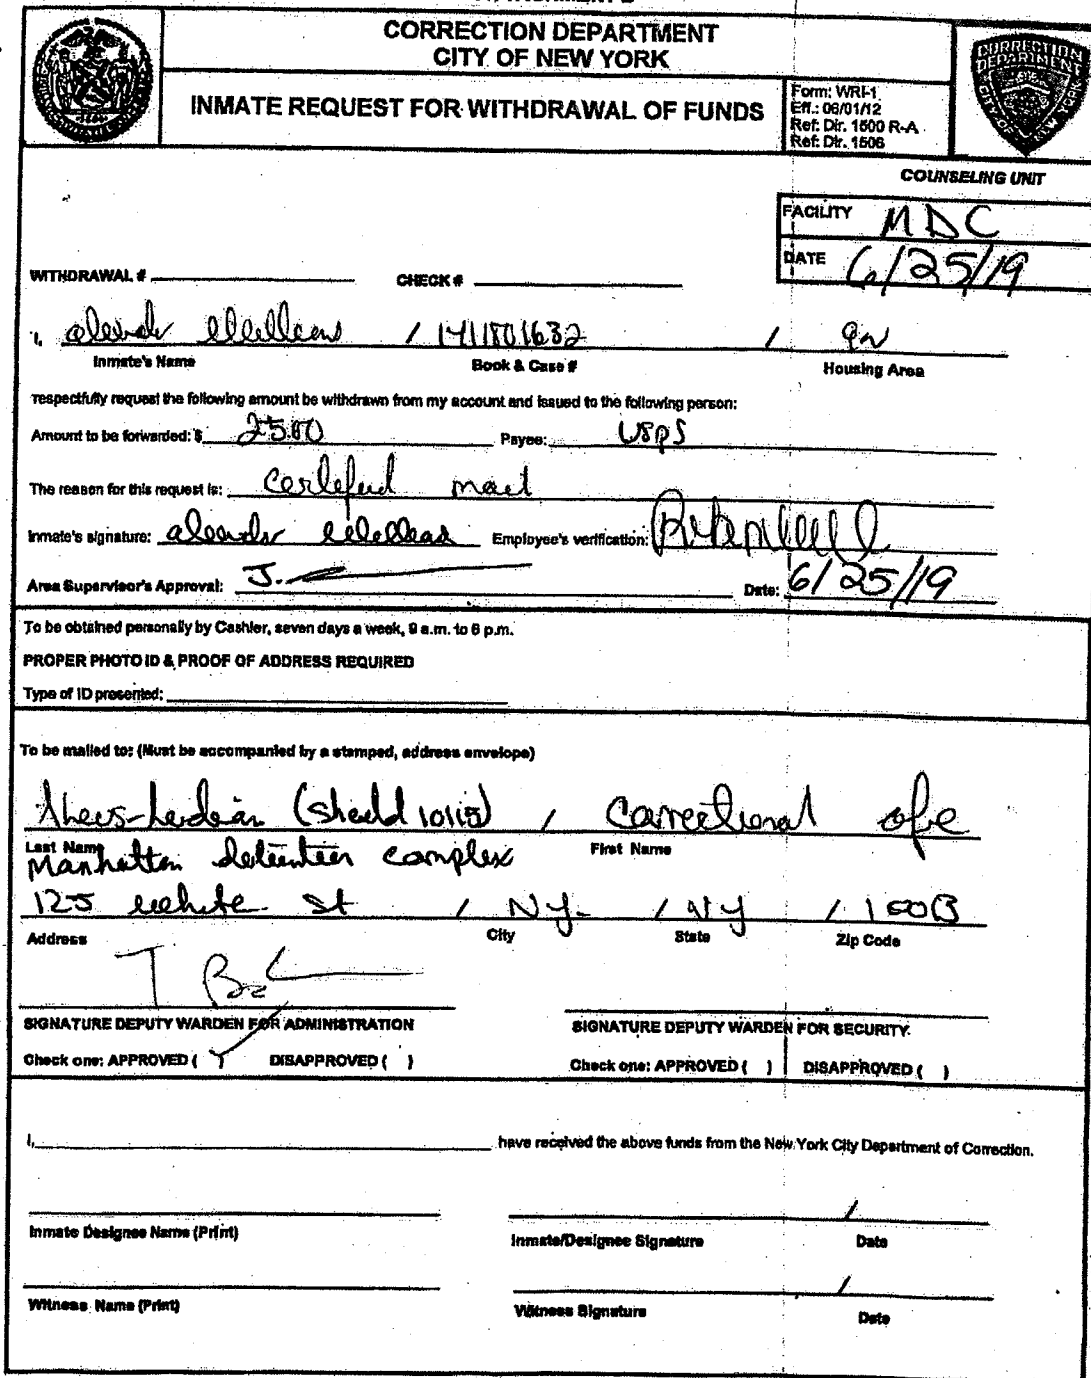 CORRECTION DEPARTMENT
CITY OF NEW YORK
INMATE REQUEST FOR WITHDRAWAL OF FUNDS
Form: WRI-1
Eff.: 06/01/12
Ref: Dir. 1500 R-A
Ref: Dir. 1506
CORRECTION
DEPARTMENT
COUNSELING UNIT
FACILITY MDC
DATE 6/25/19
WITHDRAWAL # CHECK #
I, / 1411801632 /
Inmate's Name Book & Case # Housing Area
respectfully request the following amount be withdrawn from my account and issued to the following person:
Amount to be forwarded: $ 25.00 Payee: USPS
The reason for this request is: mail
Inmate's signature: Employee's verification:
Area Supervisor's Approval: J. Date: 6/25/19
To be obtained personally by Cashier, seven days a week, 9 a.m. to 6 p.m.
PROPER PHOTO ID & PROOF OF ADDRESS REQUIRED
Type of ID presented:
To be mailed to: (Must be accompanied by a stamped, address envelope)
(Shield 10115) / Correctional
Last Name First Name
Manhattan complex
125 white st / NY. / NY /
Address City State Zip Code
SIGNATURE DEPUTY WARDEN FOR ADMINISTRATION SIGNATURE DEPUTY WARDEN FOR SECURITY.
Check one: APPROVED ( ) DISAPPROVED ( ) Check one: APPROVED ( ) DISAPPROVED ( )
I, have received the above funds from the New York City Department of Correction.
/
Inmate Designee Name (Print) Inmate/Designee Signature Date
/
Witness Name (Print) Witness Signature Date